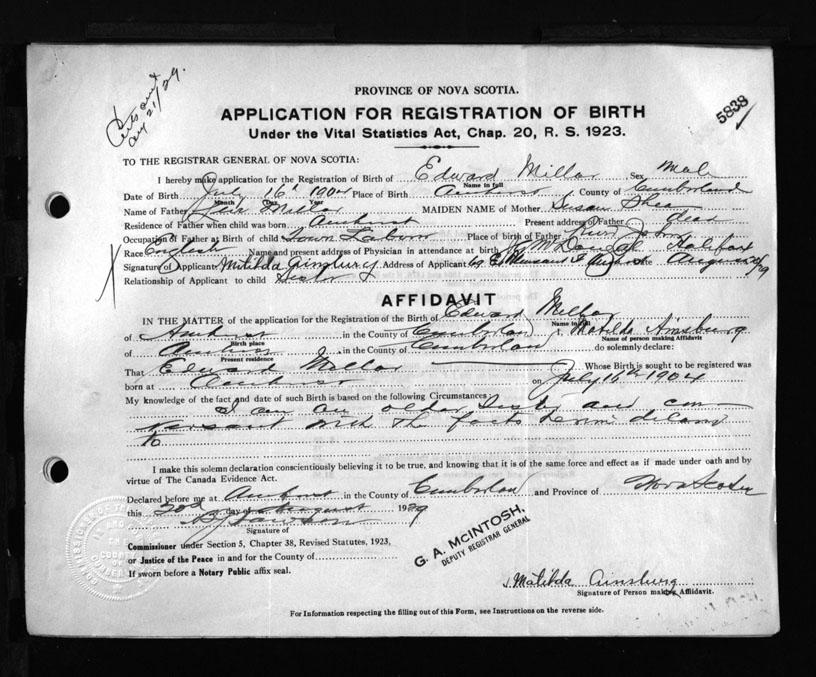 Aug 21/29.
5838
PROVINCE OF NOVA SCOTIA.
APPLICATION FOR REGISTRATION OF BIRTH
Under the Vital Statistics Act, Chap. 20, R. S. 1923.
TO THE REGISTRAR GENERAL OF NOVA SCOTIA:
I hereby make application for the Registration of Birth of Edward Millar Sex Male
Name in full
Date of Birth July 16 1904 Place of Birth Amherst County of Cumberland
Month Day Year
Name of Father Millar MAIDEN NAME of Mother Susan Shea
Residence of Father when child was born Amherst Present address of Father dead
Occupation of Father at Birth of child Town Place of birth of Father
Race English Name and present address of Physician in attendance at birth Halifax
Signature of Applicant Matilda Ainsburg Address of Applicant 69 Date August 20/29
Relationship of Applicant to child
AFFIDAVIT
IN THE MATTER of the application for the Registration of the Birth of Edward Millar
Name in full
of Amherst in the County of Cumberland I, Matilda Ainsburg
Birth place Name of person making Affidavit
of Amherst in the County of Cumberland do solemnly declare:
Present residence
That Edward Millar Whose Birth is sought to be registered was
born at Amherst on July 16 1904
My knowledge of the fact and date of such Birth is based on the following Circumstances
I am an older and con
versant with the facts herein
to
I make this solemn declaration conscientiously believing it to be true, and knowing that it is of the same force and effect as if made under oath and by
virtue of The Canada Evidence Act.
Declared before me at Amherst in the County of Cumberland and Province of Nova Scotia
this 20 day of August 1929
Signature of
Commissioner under Section 5, Chapter 38, Revised Statutes, 1923,
or Justice of the Peace in and for the County of
If sworn before a Notary Public affix seal.
G. A. McINTOSH,
DEPUTY REGISTRAR GENERAL
Matilda Ainsburg
Signature of Person making Affidavit.
For Information respecting the filling out of this Form, see Instructions on the reverse side.